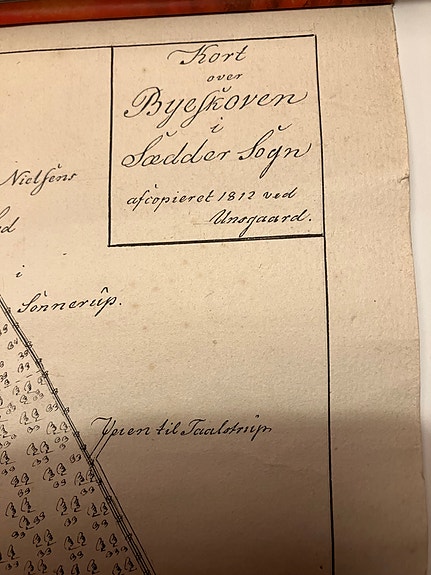 Kort
over
Byeskoven
i
Sædder Sogn
afcopieret 1812 ved
Unsgaard.
Nielsens
i
Sönnerup.
Veien til Taalstrup